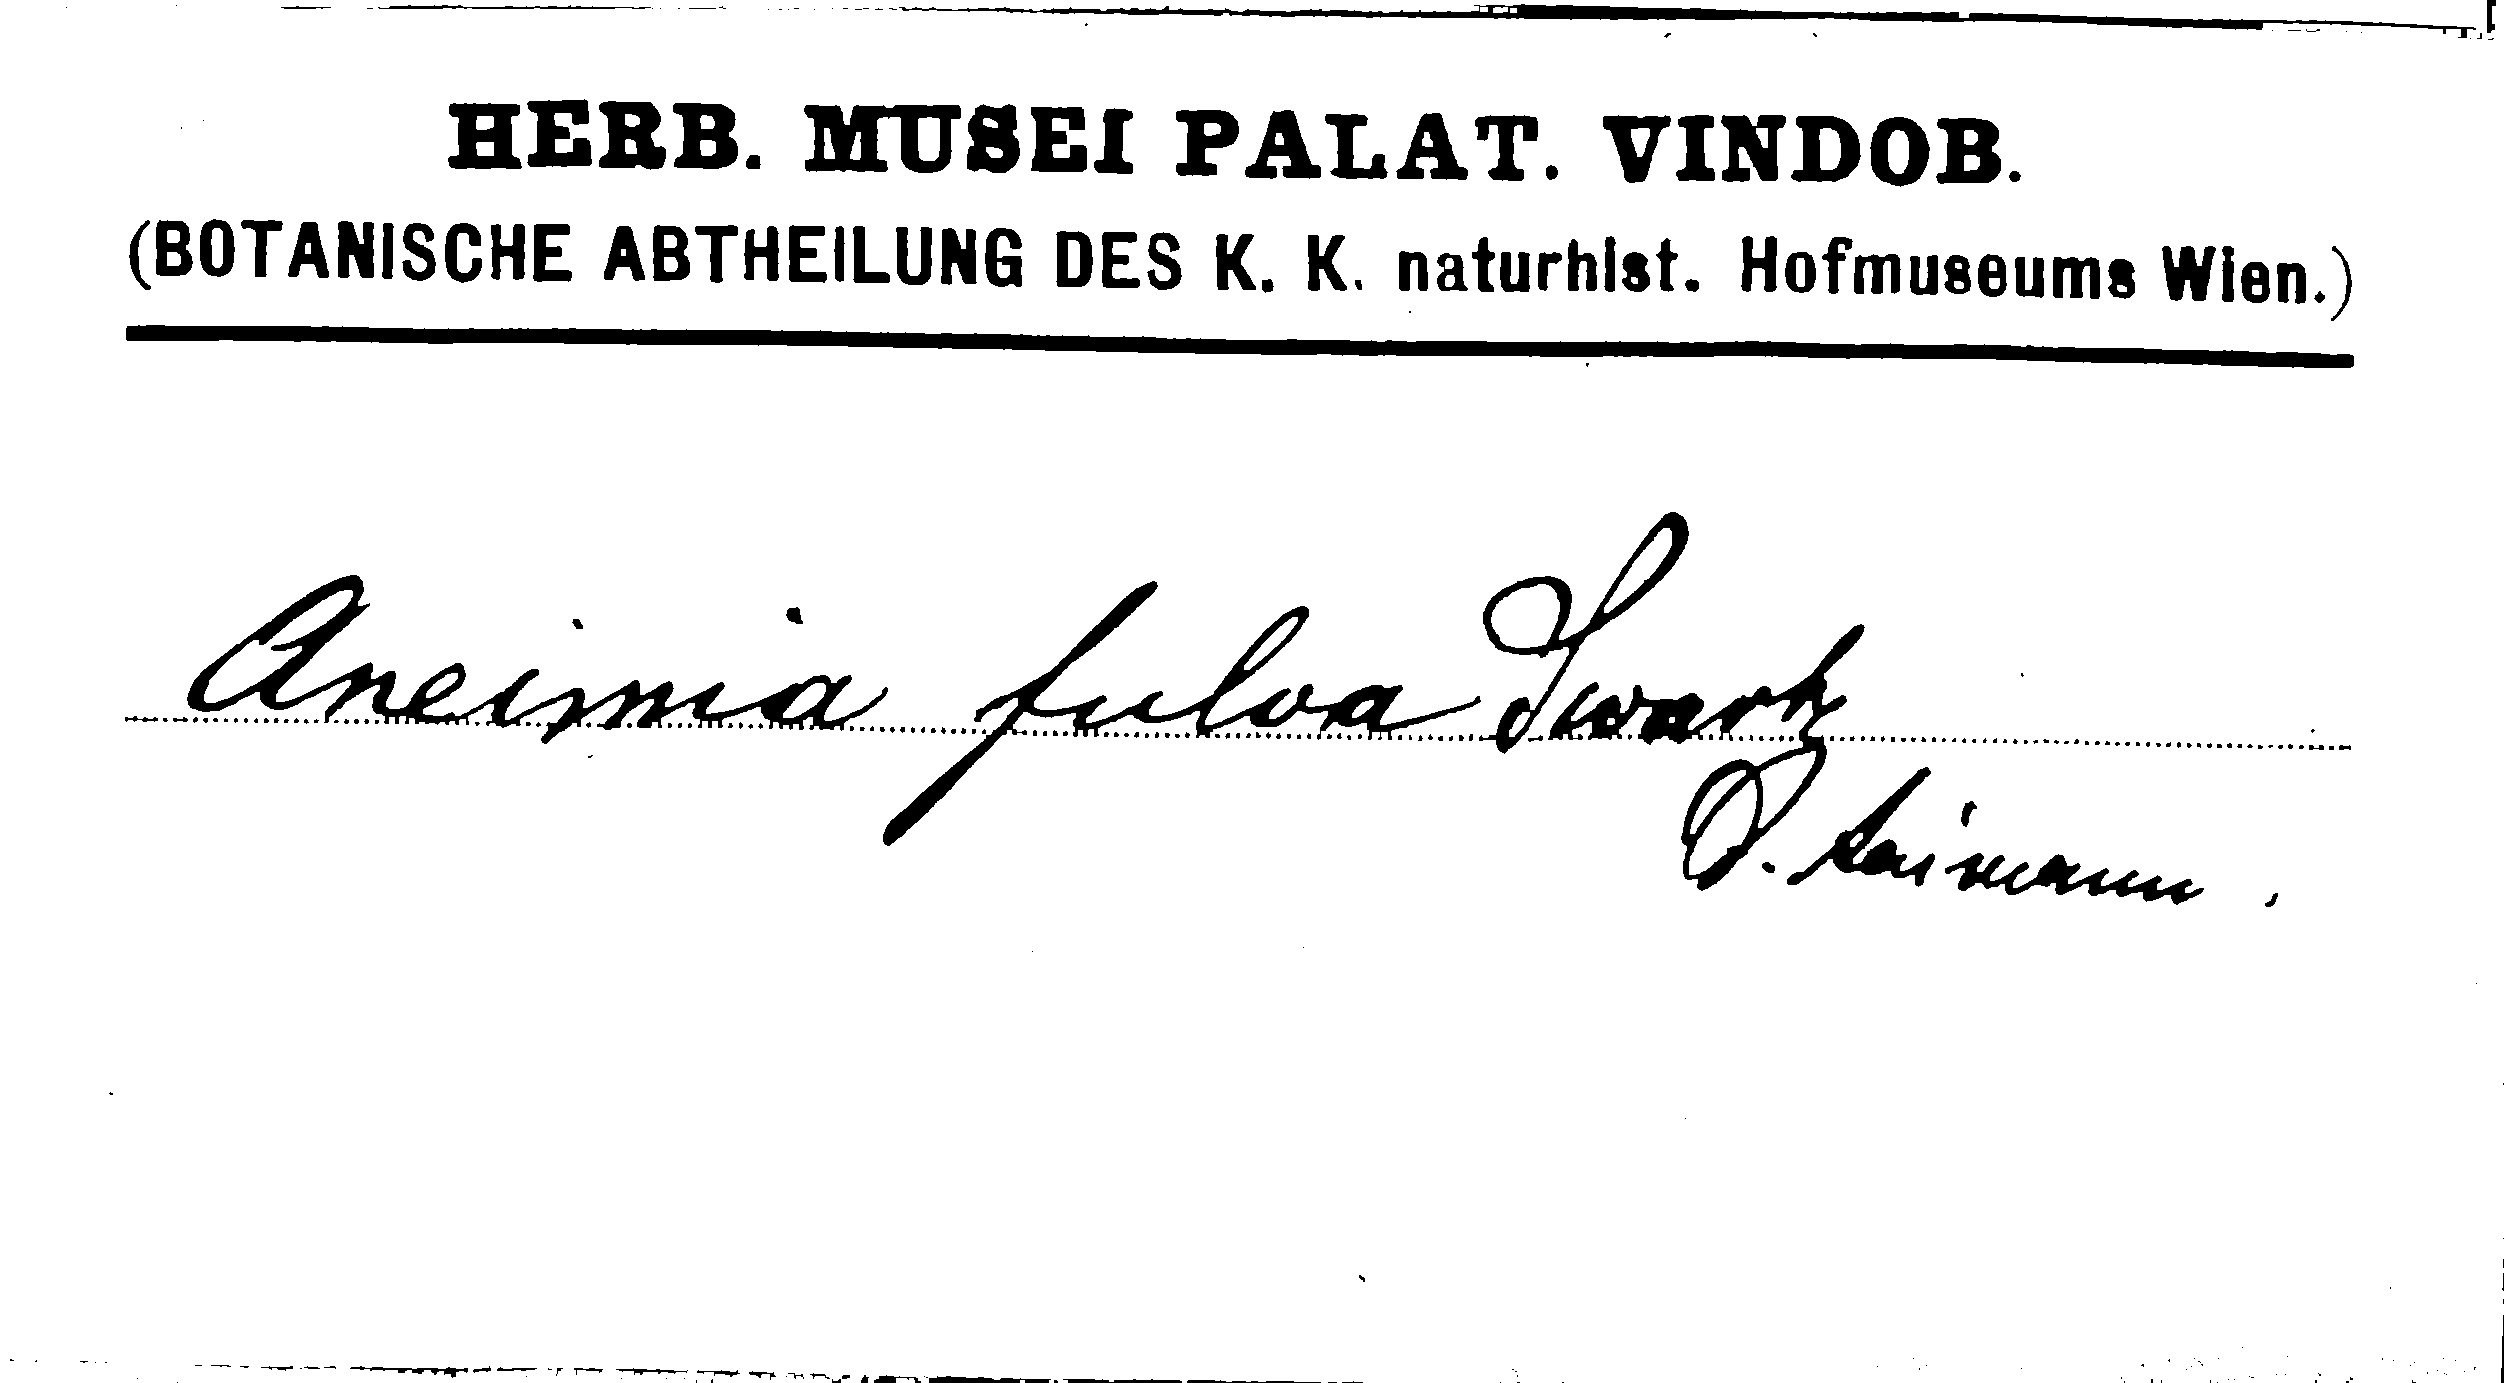 HERB. MUSEI PALAT. VINDOB.
(BOTANISCHE ABTHEILUNG DES K. K. naturhist. Hofmuseums Wien.)
Aneimia fulva Swartz
Raimann.